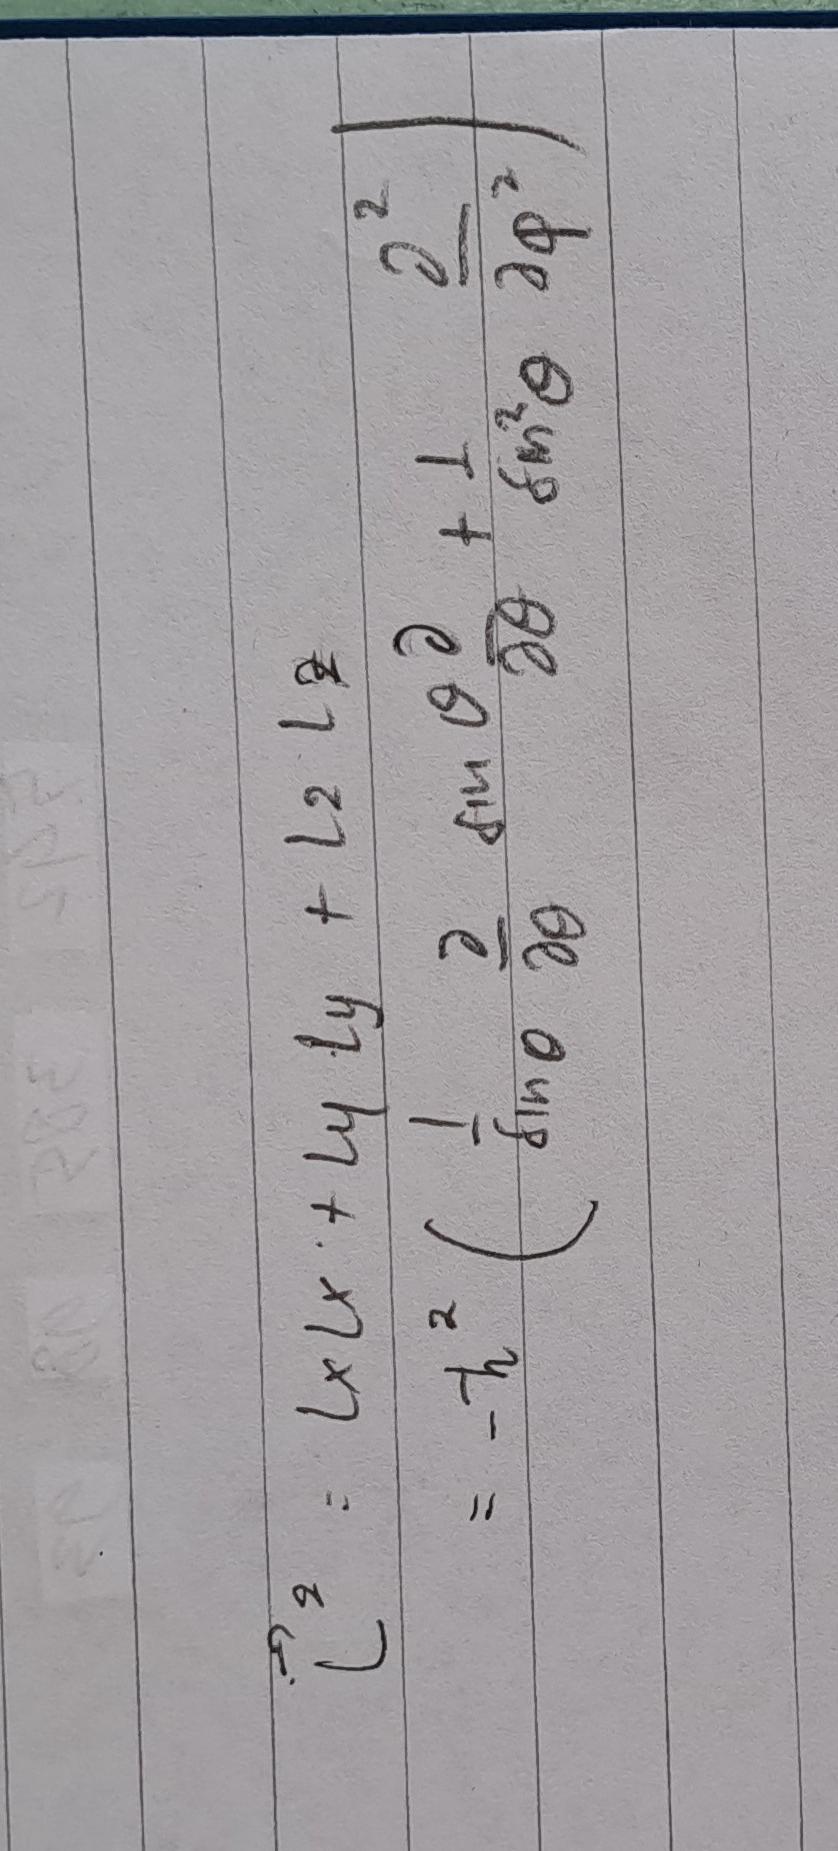 L⃗² = LxLx + LyLy + LzLz
= -ħ² ( 1/sinθ ∂/∂θ sinθ ∂/∂θ + 1/sin²θ ∂²/∂φ² )